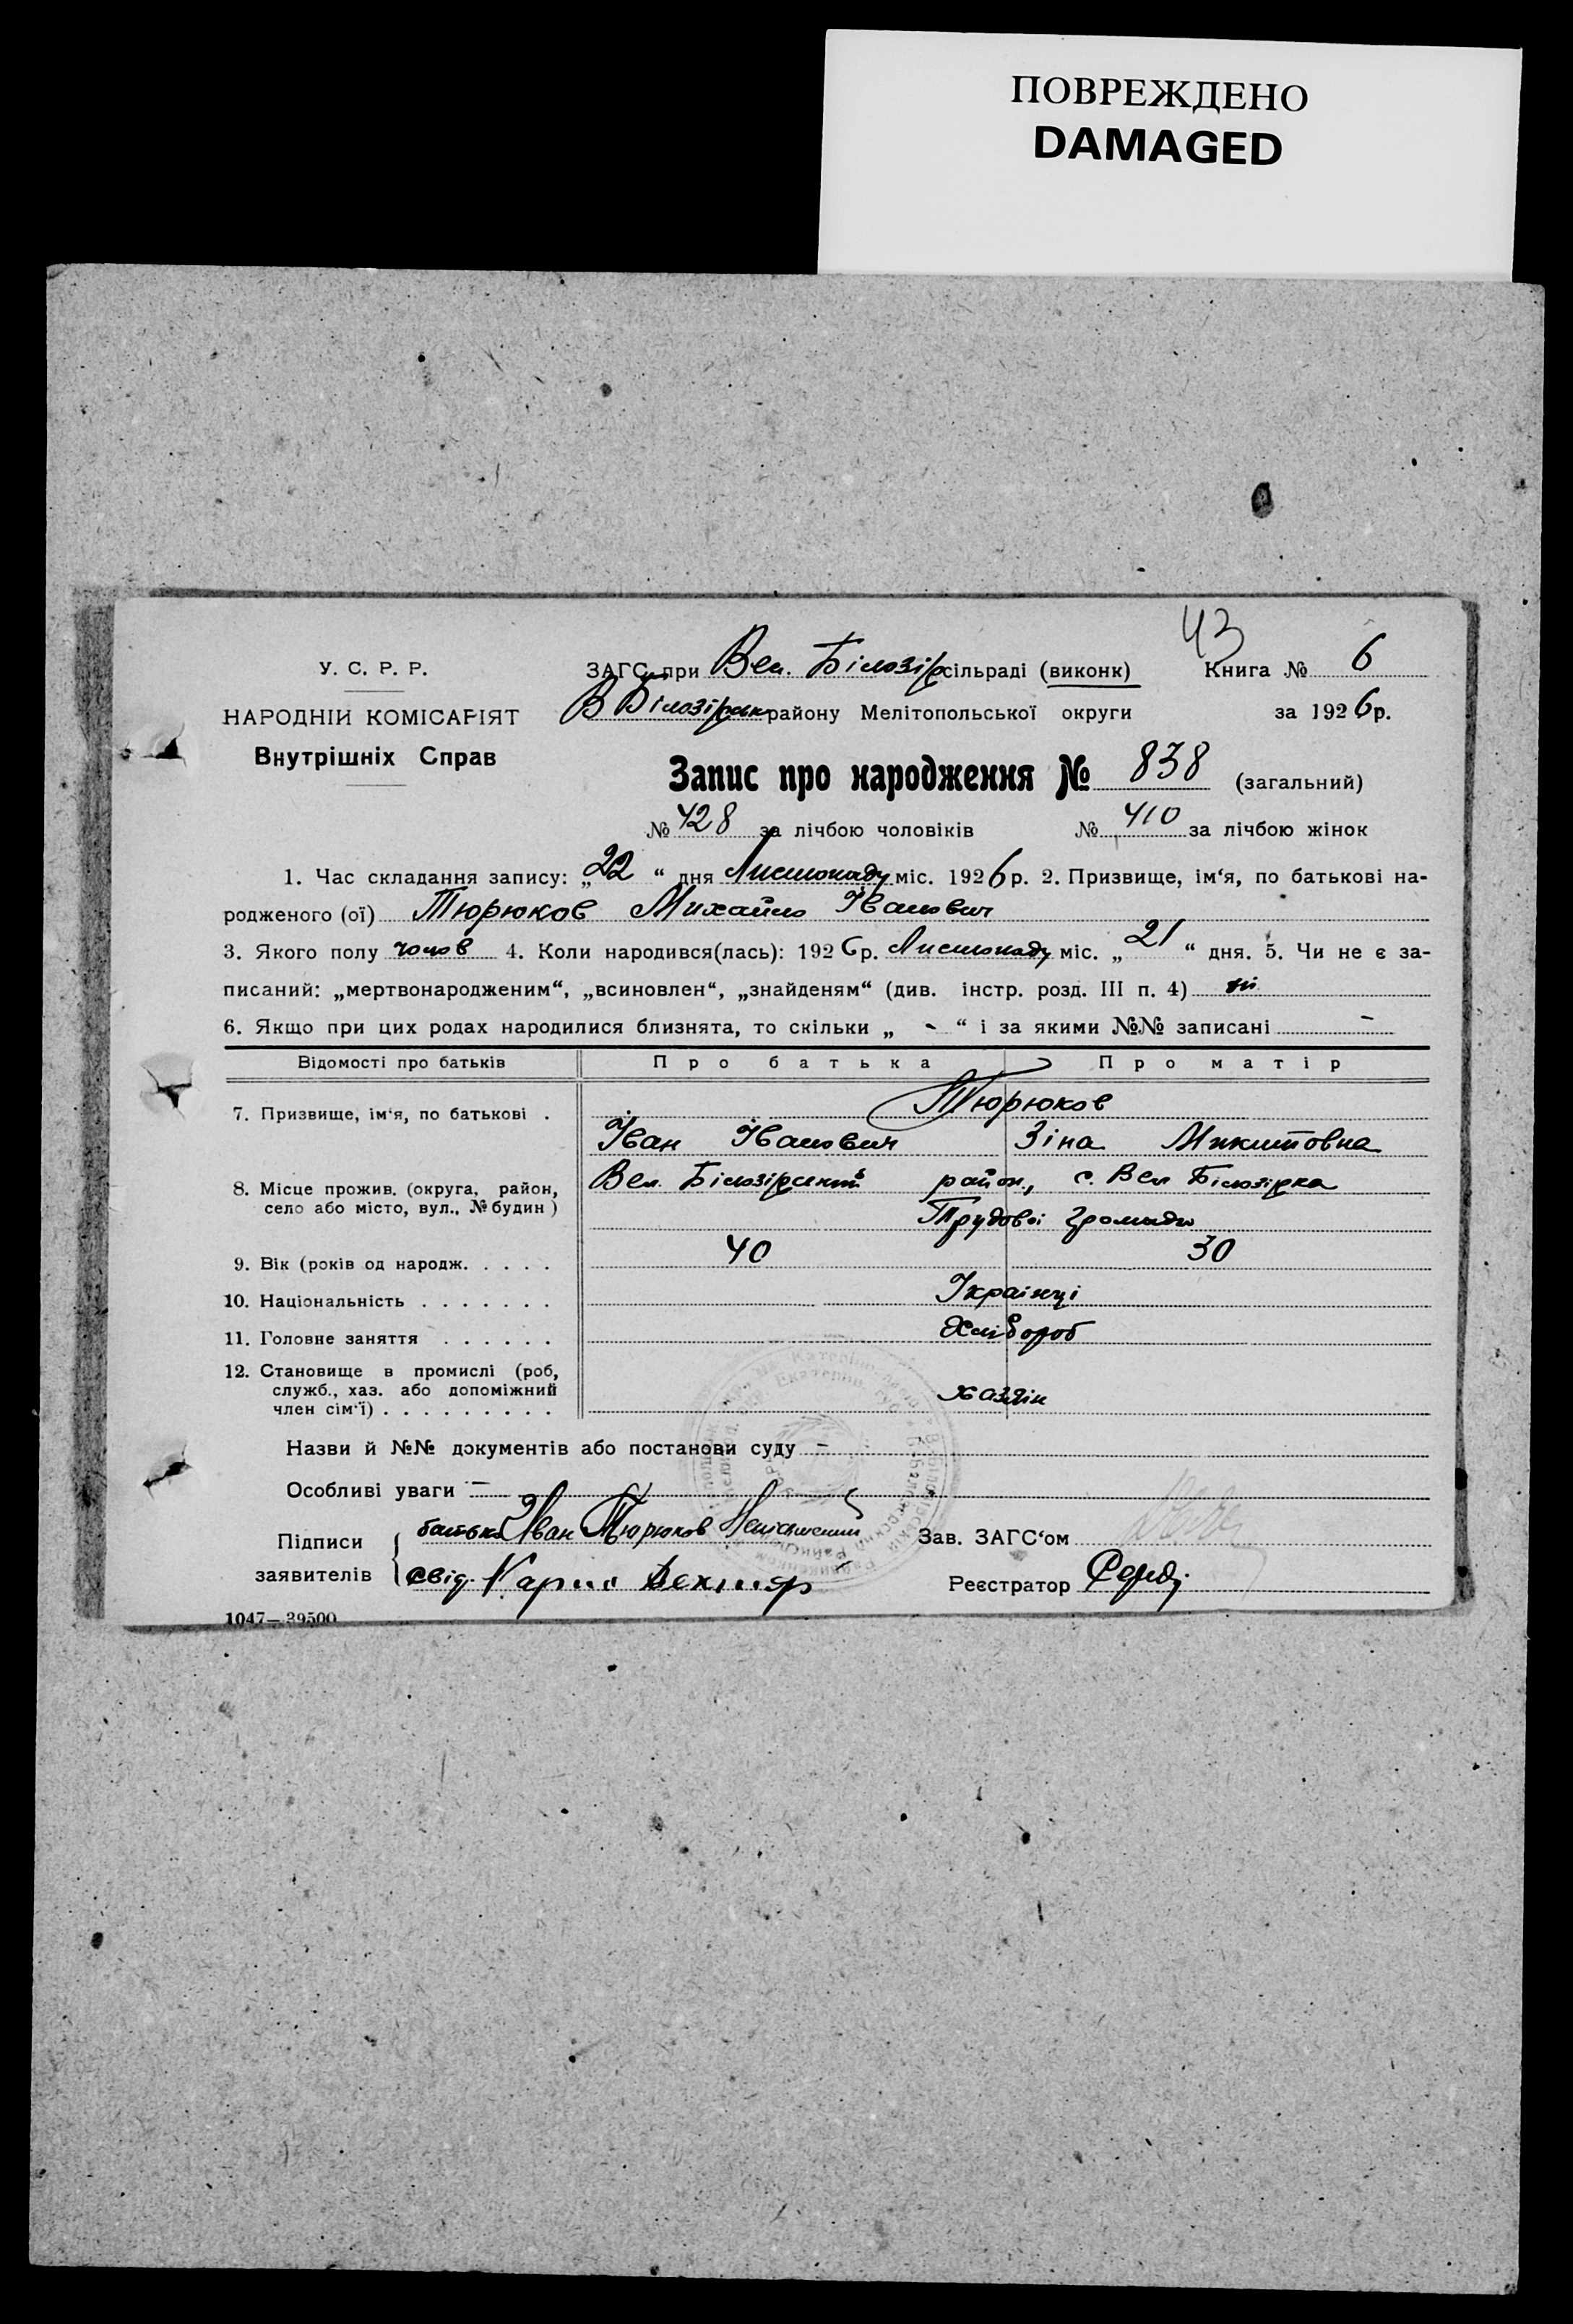 ПОВРЕЖДЕНО
DAMAGED
43
У. С. Р. Р.
НАРОДНІЙ КОМІСАРІЯТ
Внутрішніх Справ
ЗАГС при Вел. Білозір сільраді (виконк) Книга № 6
В Білозірськ району Мелітопольської округи за 1926 р.
Запис про народження № 838 (загальний)
№ 428 за лічбою чоловіків № 410 за лічбою жінок
1. Час складання запису: „22“ дня Листопаду міс. 1926 р. 2. Призвище, ім‘я, по батькові на-
родженого (ої) Тюрюков Михайло Іванович
3. Якого полу чолов 4. Коли народився(лась): 1926 р. Листопаду міс. „21“ дня. 5. Чи не є за-
писаний: „мертвонародженим“, „всиновлен“, „знайденям“ (див. інстр. розд. III п. 4) ні
6. Якщо при цих родах народилися близнята, то скільки „ - “ і за якими №№ записані -
Відомості про батьків Про батька Про матір
7. Призвище, ім‘я, по батькові . Тюрюков
Іван Іванович Зіна Микитовна
8. Місце прожив. (округа, район, Вел. Білозірський район, с. Вел Білозірка
село або місто, вул., № будин) Трудової громади
9. Вік (років од народж. . . . . 40 30
10. Національність . . . . . . . Українці
11. Головне заняття . . . . . . Хлібороб
12. Становище в промислі (роб,
служб., хаз. або допоміжний хазяін
член сім‘ї) . . . . . . . . .
Назви й №№ документів або постанови суду -
Особливі уваги -
Підписи батько Іван Тюрюков Зав. ЗАГС‘ом
заявителів свід. Карпо Дехтяр Реєстратор
1047—39500